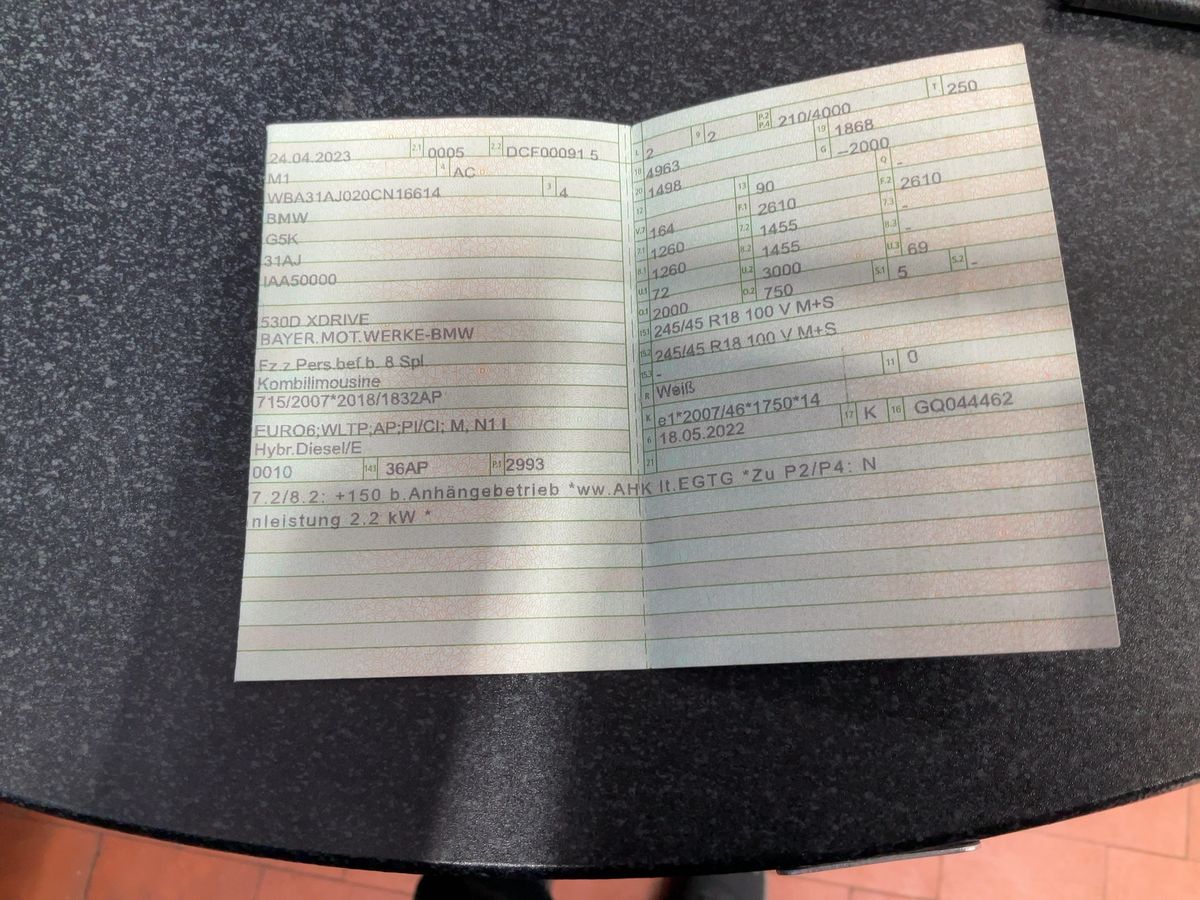 24.04.2023 2.1 0005 2.2 DCF00091 5
M1 4 AC
WBA31AJ020CN16614 3 4
BMW
G5K
31AJ
IAA50000
530D XDRIVE
BAYER.MOT.WERKE-BMW
Fz.z.Pers.bef.b. 8 Spl
Kombilimousine
715/2007*2018/1832AP
EURO6;WLTP;AP;PI/CI; M, N1 I
Hybr.Diesel/E
0010 14.1 36AP P.1 2993
7.2/8.2: +150 b.Anhängebetrieb *ww.AHK lt.EGTG *Zu P2/P4: N
nleistung 2.2 kW *
L 2 9 2 P.2 P.4 210/4000 T 250
18 4963 19 1868
20 1498 G –2000
12 13 90 Q -
V.7 164 F.1 2610 F.2 2610
7.1 1260 7.2 1455 7.3 -
8.1 1260 8.2 1455 8.3 -
U.1 72 U.2 3000 U.3 69
O.1 2000 O.2 750 S.1 5 S.2 -
15.1 245/45 R18 100 V M+S
15.2 245/45 R18 100 V M+S
15.3 -
R Weiß 11 0
K e1*2007/46*1750*14
6 18.05.2022 17 K 16 GQ044462
21